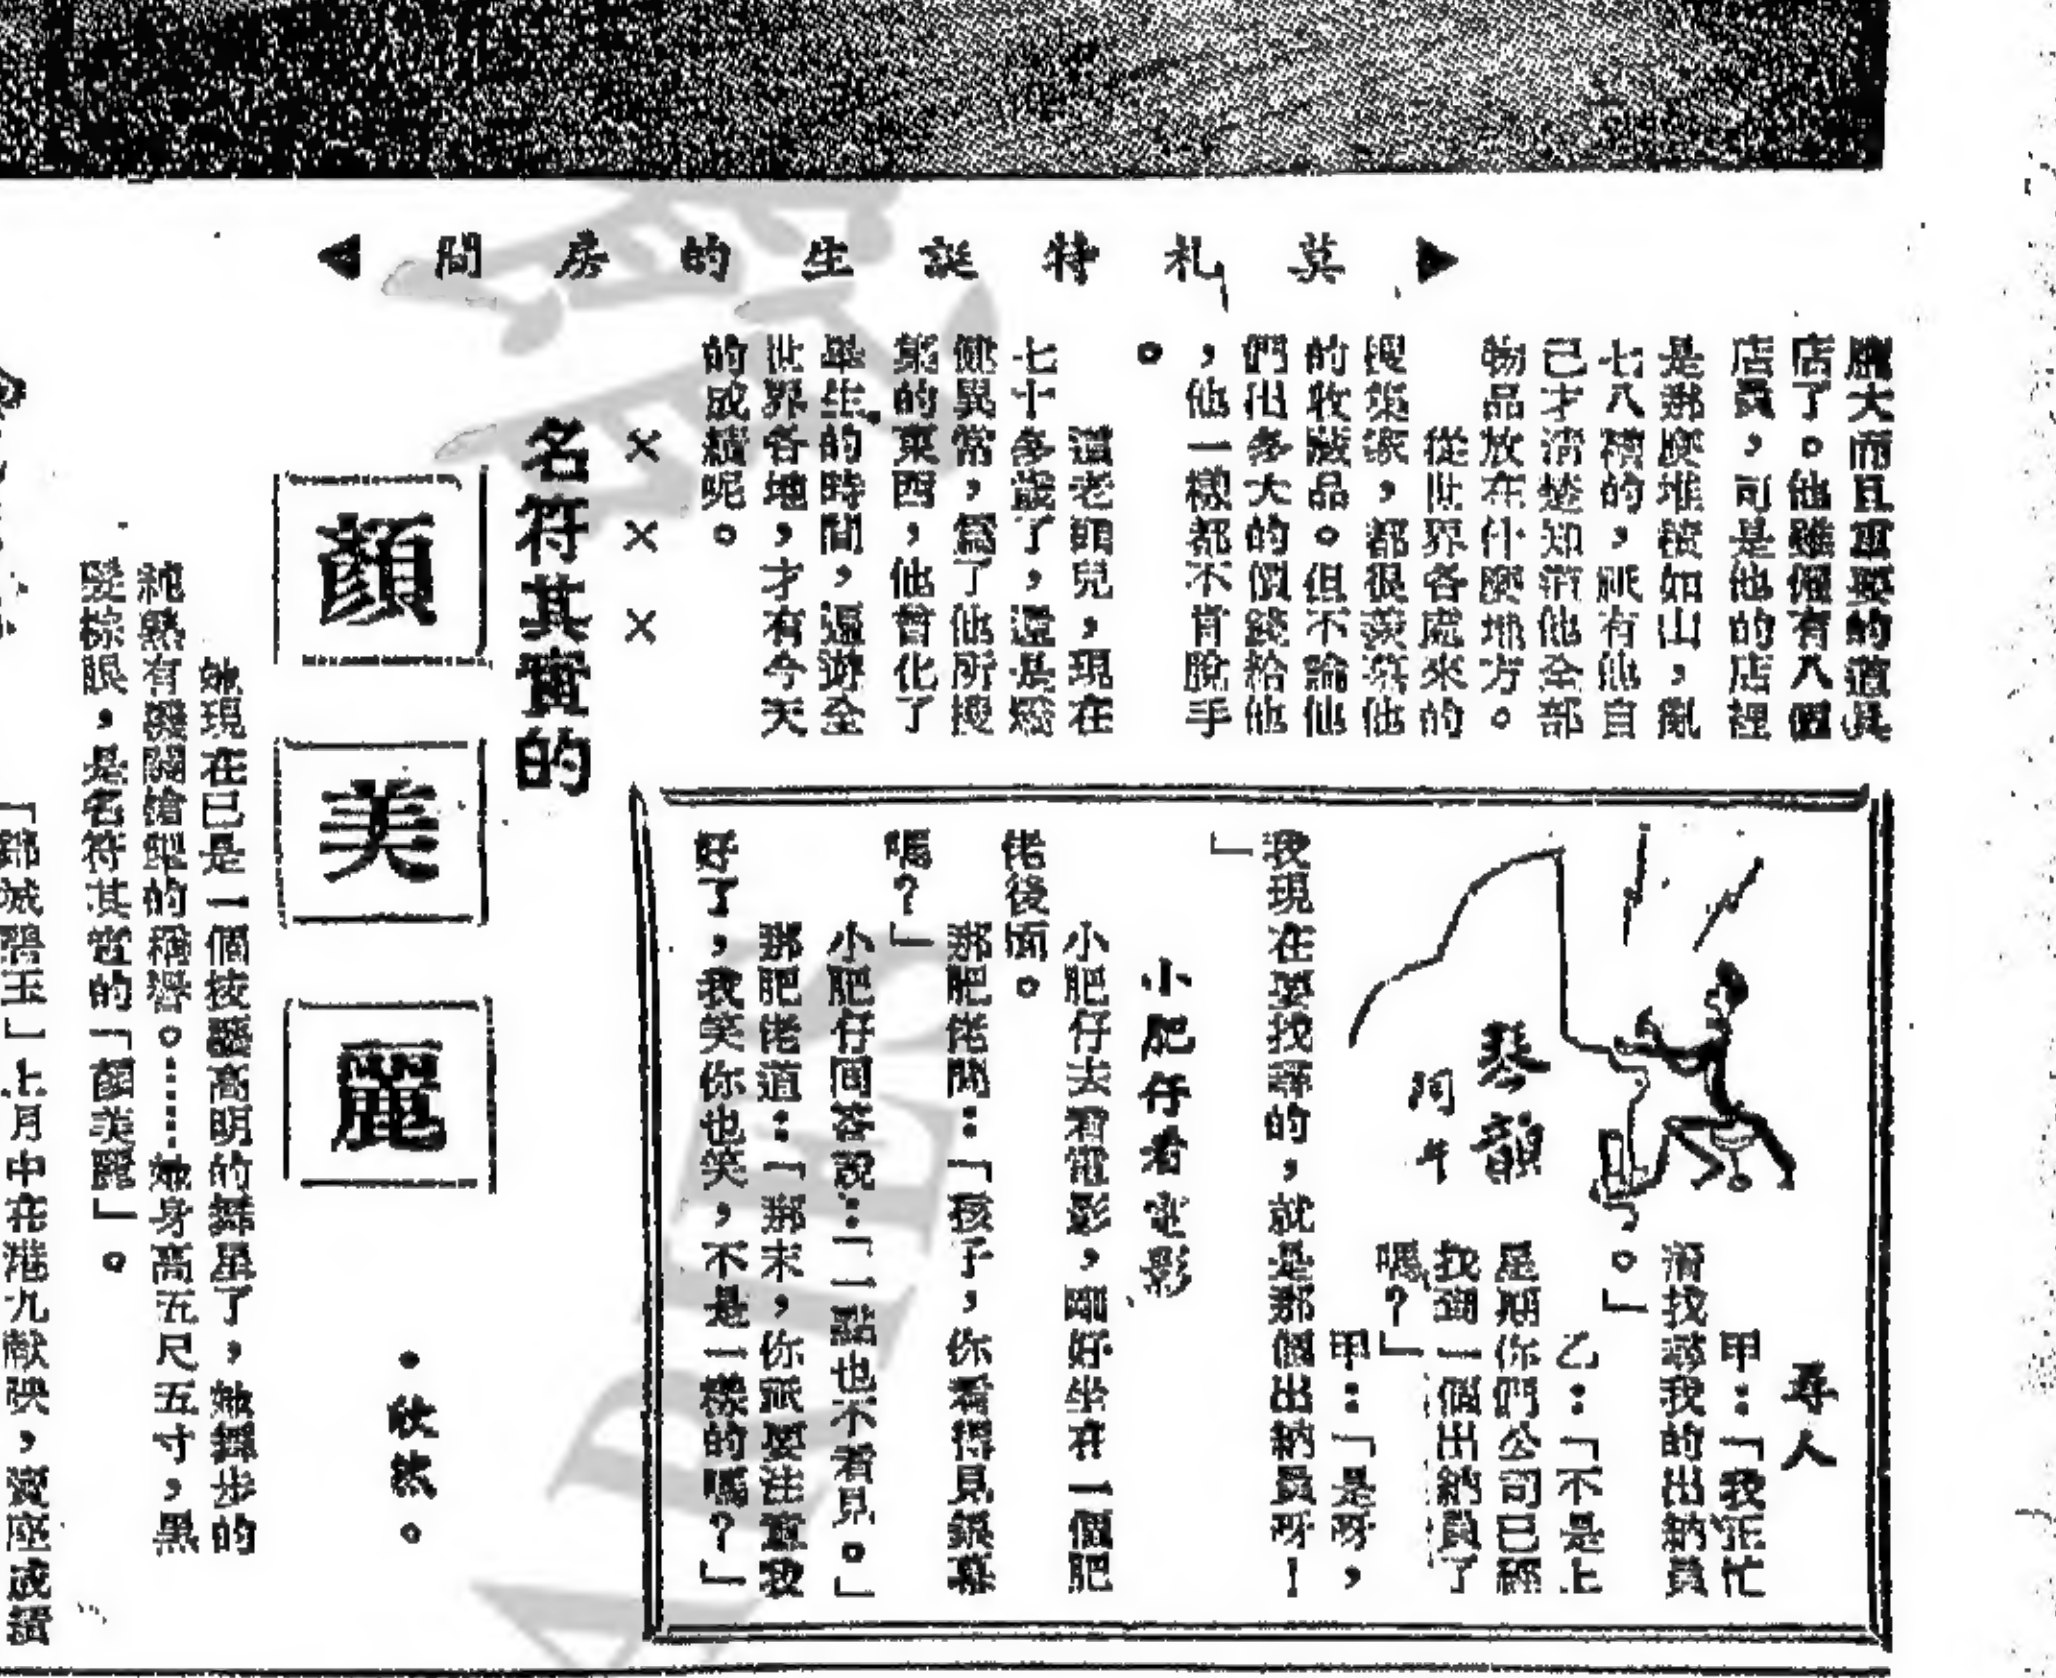 莫札特誕生的房間
龐大而且重要的道具
店了。他雖僱有八個
店員,可是他的店裡
是那麽堆積如山,亂
七八糟的,祇有他自
己才清楚知道他全部
物品放在什麽地方。
從世界各處來的
搜集家,都很羨慕他
的收藏品。但不論他
們出多大的價錢給他
,他一樣都不肯脫手
。
這老頭兒,現在
七十多歲了,還是矯
健異常,爲了他所搜
集的東西,他曾化了
畢生的時間,遍遊全
世界各地,才有今天
的成績呢。
×××
琴韻
阿牛
尋人
甲:「我很忙
淸找尋我的出納員
。」
乙:「不是上
星期你們公司已經
找到一個出納員了
嗎?」
甲:「是呀,
我現在要找尋的,就是那個出納員呀!
」
小肥仔看電影
小肥仔去看電影,剛好坐在一個肥
佬後面。
那肥佬問:「孩子,你看得見銀幕
嗎?」
小肥仔回答說:「一點也不看見。」
那肥佬道:「那末,你祇要注意我
好了,我笑你也笑,不是一樣的嗎?」
名符其實的
顏美麗
•欣然。
她現在已是一個技藝高明的舞星了,她舞步的
純熟有機關槍脚的稱譽。……她身高五尺五寸,黑
髮棕眼,是名符其實的「顏美麗」。
「錦城碧玉」上月中在港九献映,賣座成績